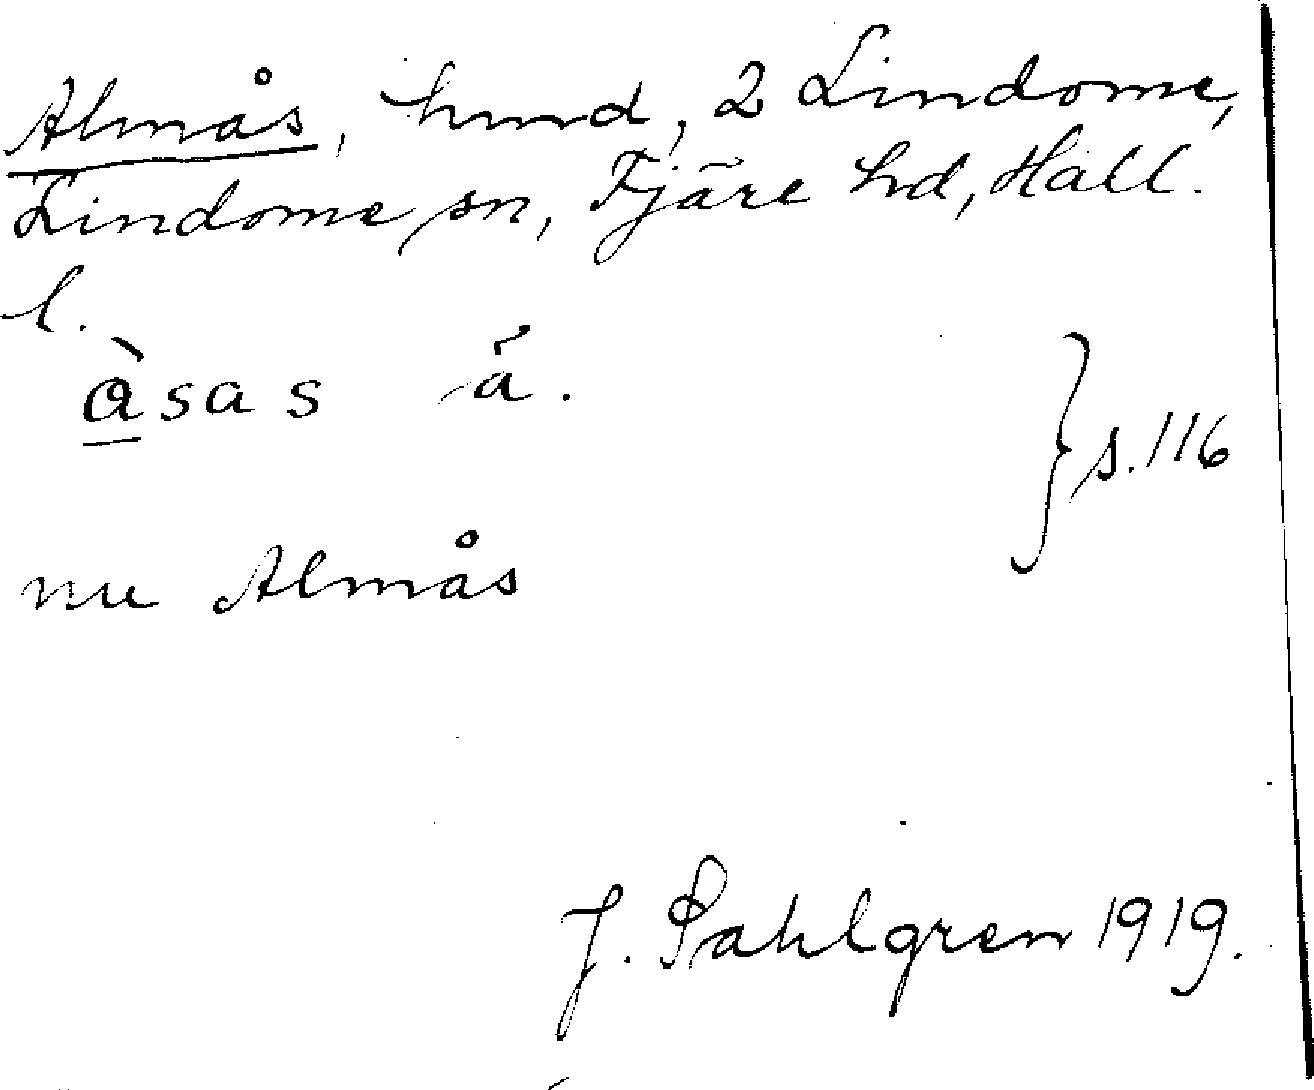 Almås, hmd, 2 Lindome,
Lindome sn, Fjäre hd, Hall.
l.
àsas á.
} s. 116
nu Almås
J. Sahlgren 1919.